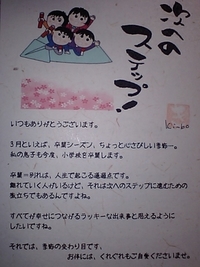 次への
ステップ!
いつもありがとうございます。
3月といえば、卒業シーズン、ちょっと心さびしい季節…。
私の息子も今度、小学校を卒業します。
卒業＝別れは、人生で起こる通過点です。
離れていく人がいるけど、それは次へのステップに進むための
旅立ちでもあるんですよね。
すべてが幸せにつながるラッキーな出来事と思えるように
したいですね。
それでは、季節の変わり目です、
お体には、くれぐれもご自愛くださいませ。